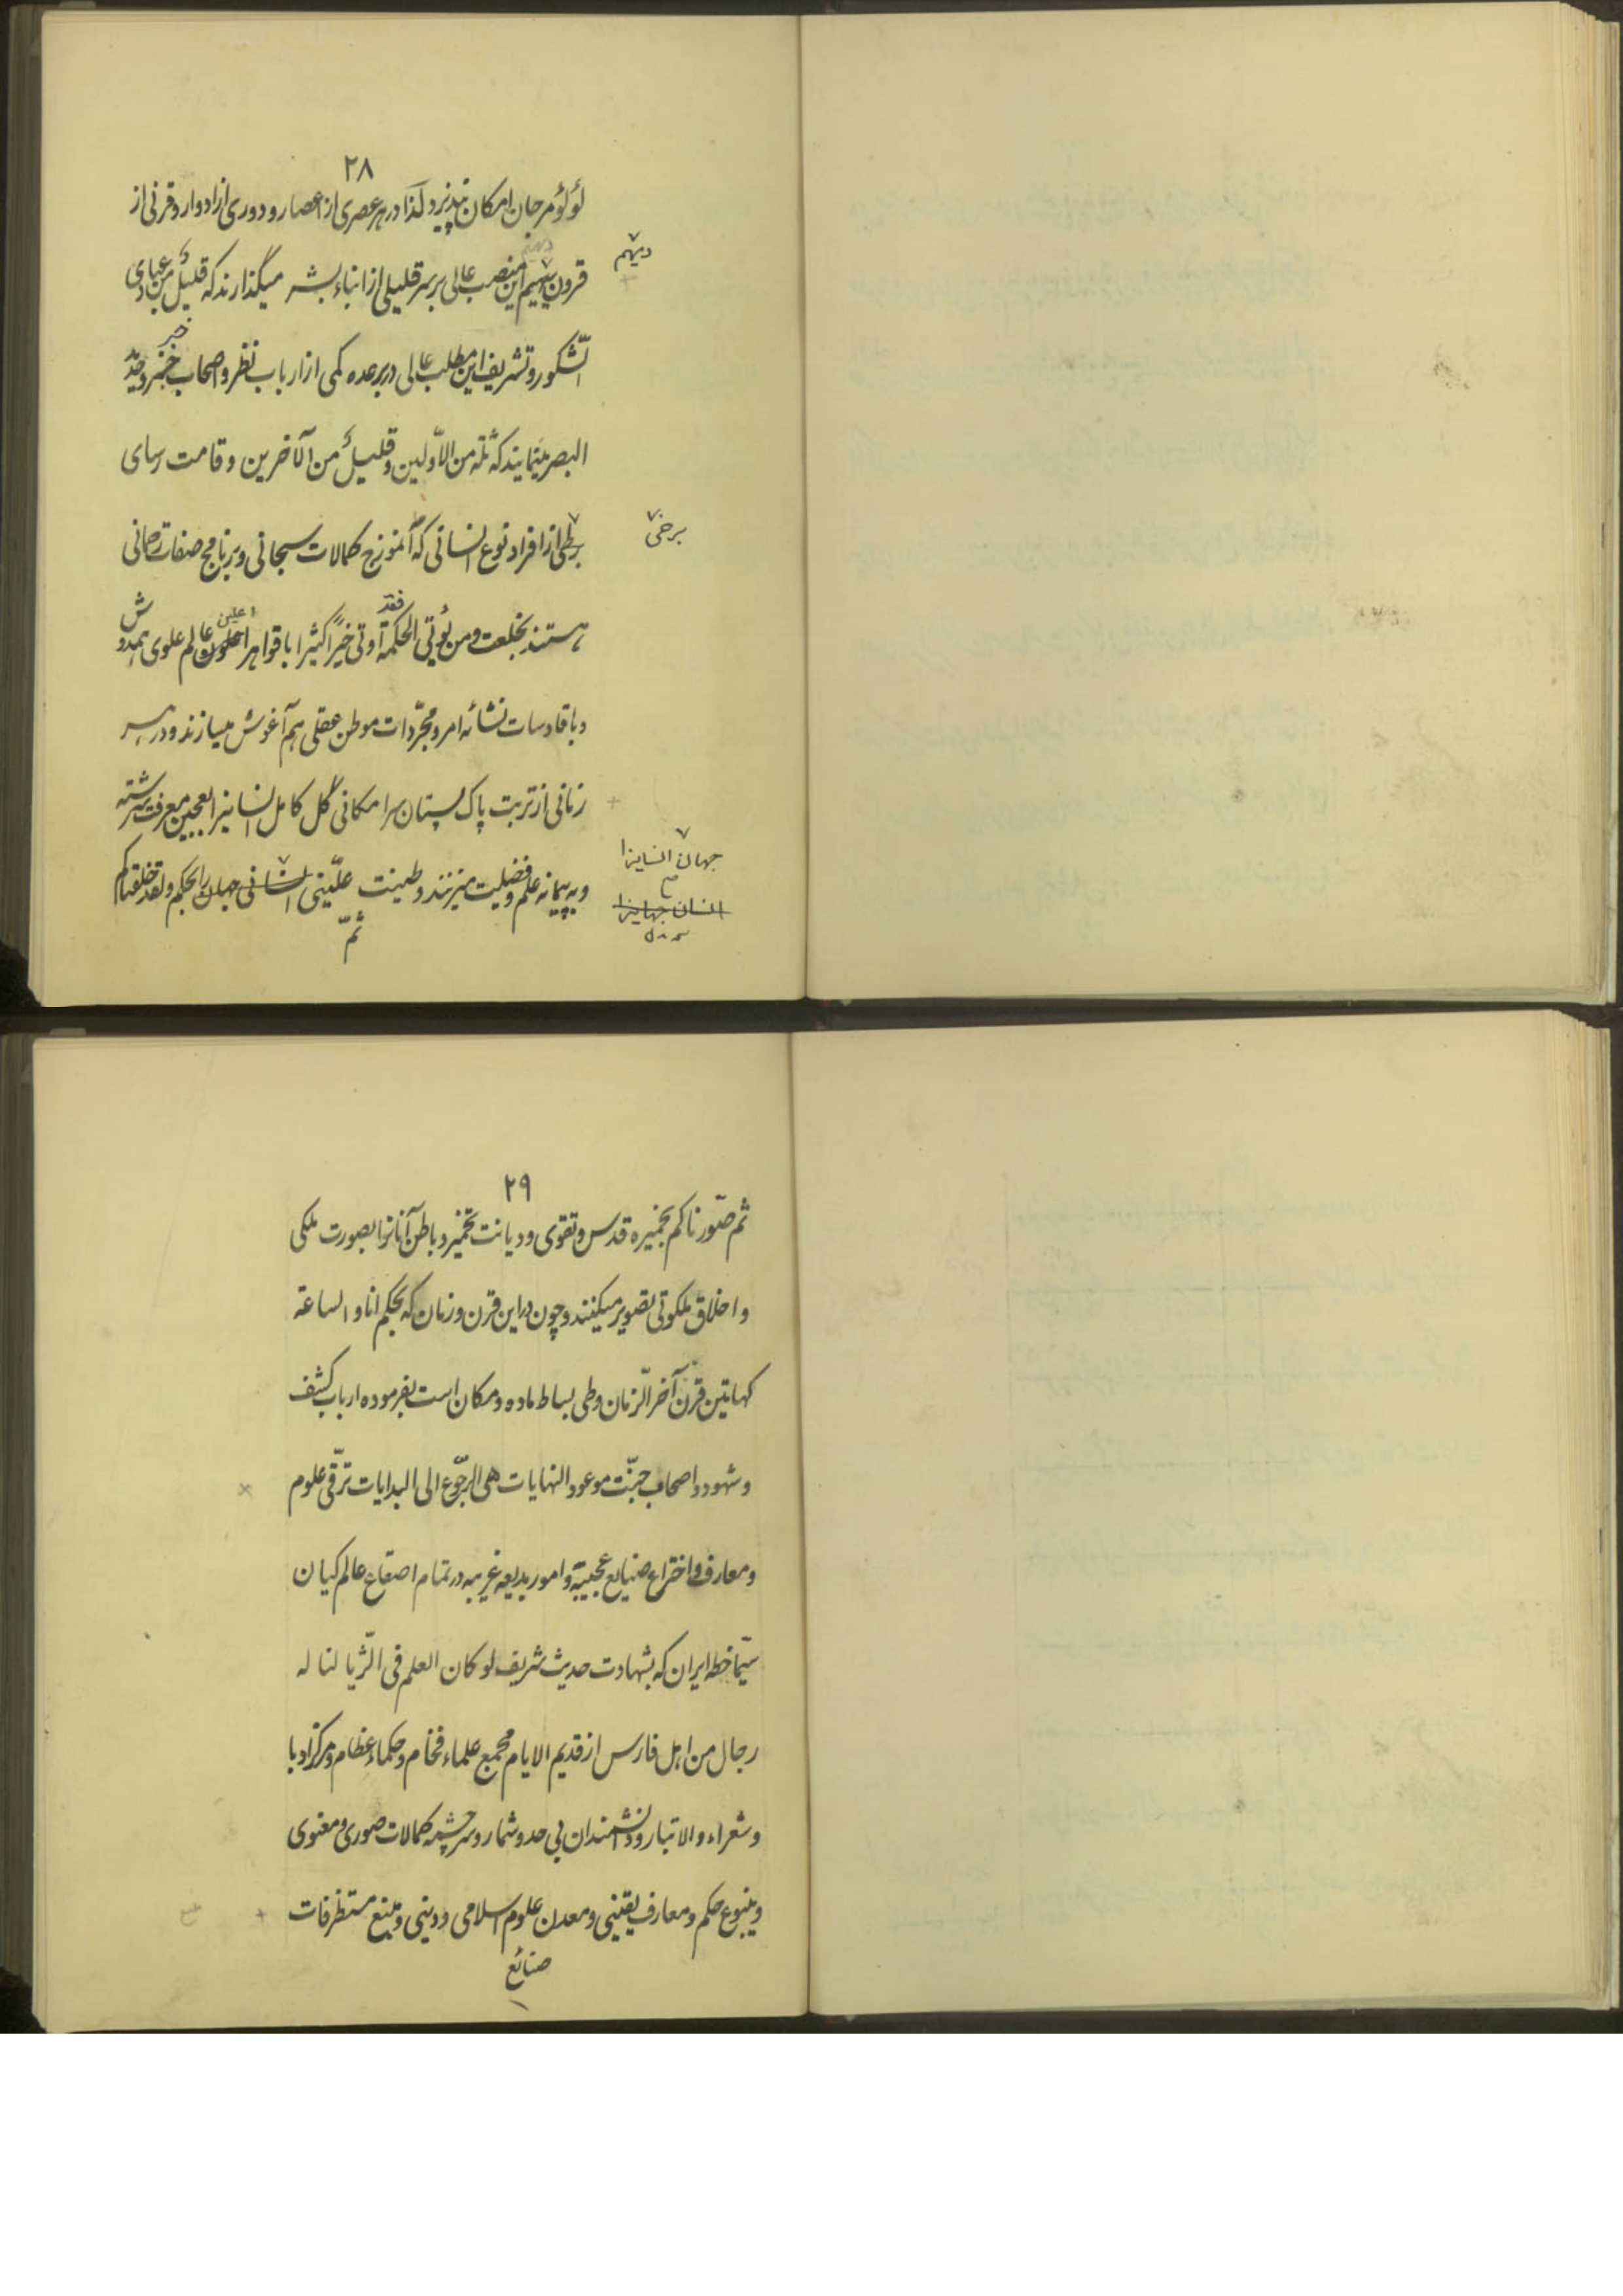 ۲۸
لؤلؤ مرجان امکان نپذیرد لذا در هر عصری از اعصار و دوری از ادوار و قرنی از
قرون دیهیم این منصب عالی بر سر قلیلی از ابناء بشر میگذارند که قلیلٌ من عبادی
دیهیم
الشّکور و تشریف این مطلب عالی در بر عده کمی از ارباب نظر و اصحاب خبر و
خبر
البصر مینمایند که ثلّة من الاوّلین و قلیلٌ من الآخرین و قامت رسای
از افراد نوع انسانی که انموزج کمالات سبحانی و برنامج صفات رحمانی
برخی
هستند بخلعت و من یُؤتی الحکمة فقد اوتی خیراً کثیرا با قواهر اعلون عالم علوی همدوش
اعلین
و با قادسات نشأئه امر و مجرّدات موطن عقلی هم آغوش میسازند و در هر
زمانی از تربت پاک امکانی گل کامل انسانیرا بعجین معرفت سرشته
و به پیمانه علم و فضلیت میزنند و طینت علّیینی انسانی جهان را بحکم و لقد خلقناکم
جهان انسانیرا
انسان جهانیرا
ثمّ
۲۹
ثم صوّرناکم بخمیره قدس و تقوی و دیانت تخمیر و باطن آنانرا بصورت ملکی
و اخلاق ملکوتی تصویر میکنند و چون در این قرن و زمان که بحکم انا و الساعة
کهاتین قرن آخر الزّمان وطی بساط ماده و مکان است بفرموده ارباب کشف
و شهود و اصحاب جنّت موعود النهایات هی الرّجوع الی البدایات ترقّی علوم
و معارف و اختراع صنایع عجیبه و امور بدیعه غریبه در تمام اصقاع عالم کیان
سیّما خطه ایران که بشهادت حدیث شریف لو کان العلم فی الثّریا لناله
رجال من اهل فارس از قدیم الایام مجمع علماء فخام و حکماء عظام و مرکز ادبا
و شعراء والاتبار و دانشمندان بی حد و شمار و سرچشمه کمالات صوری و معنوی
و ینبوع حکم و معارف یقینی و معدن علوم اسلامی و دینی و منبع مستظرفات
صنائع